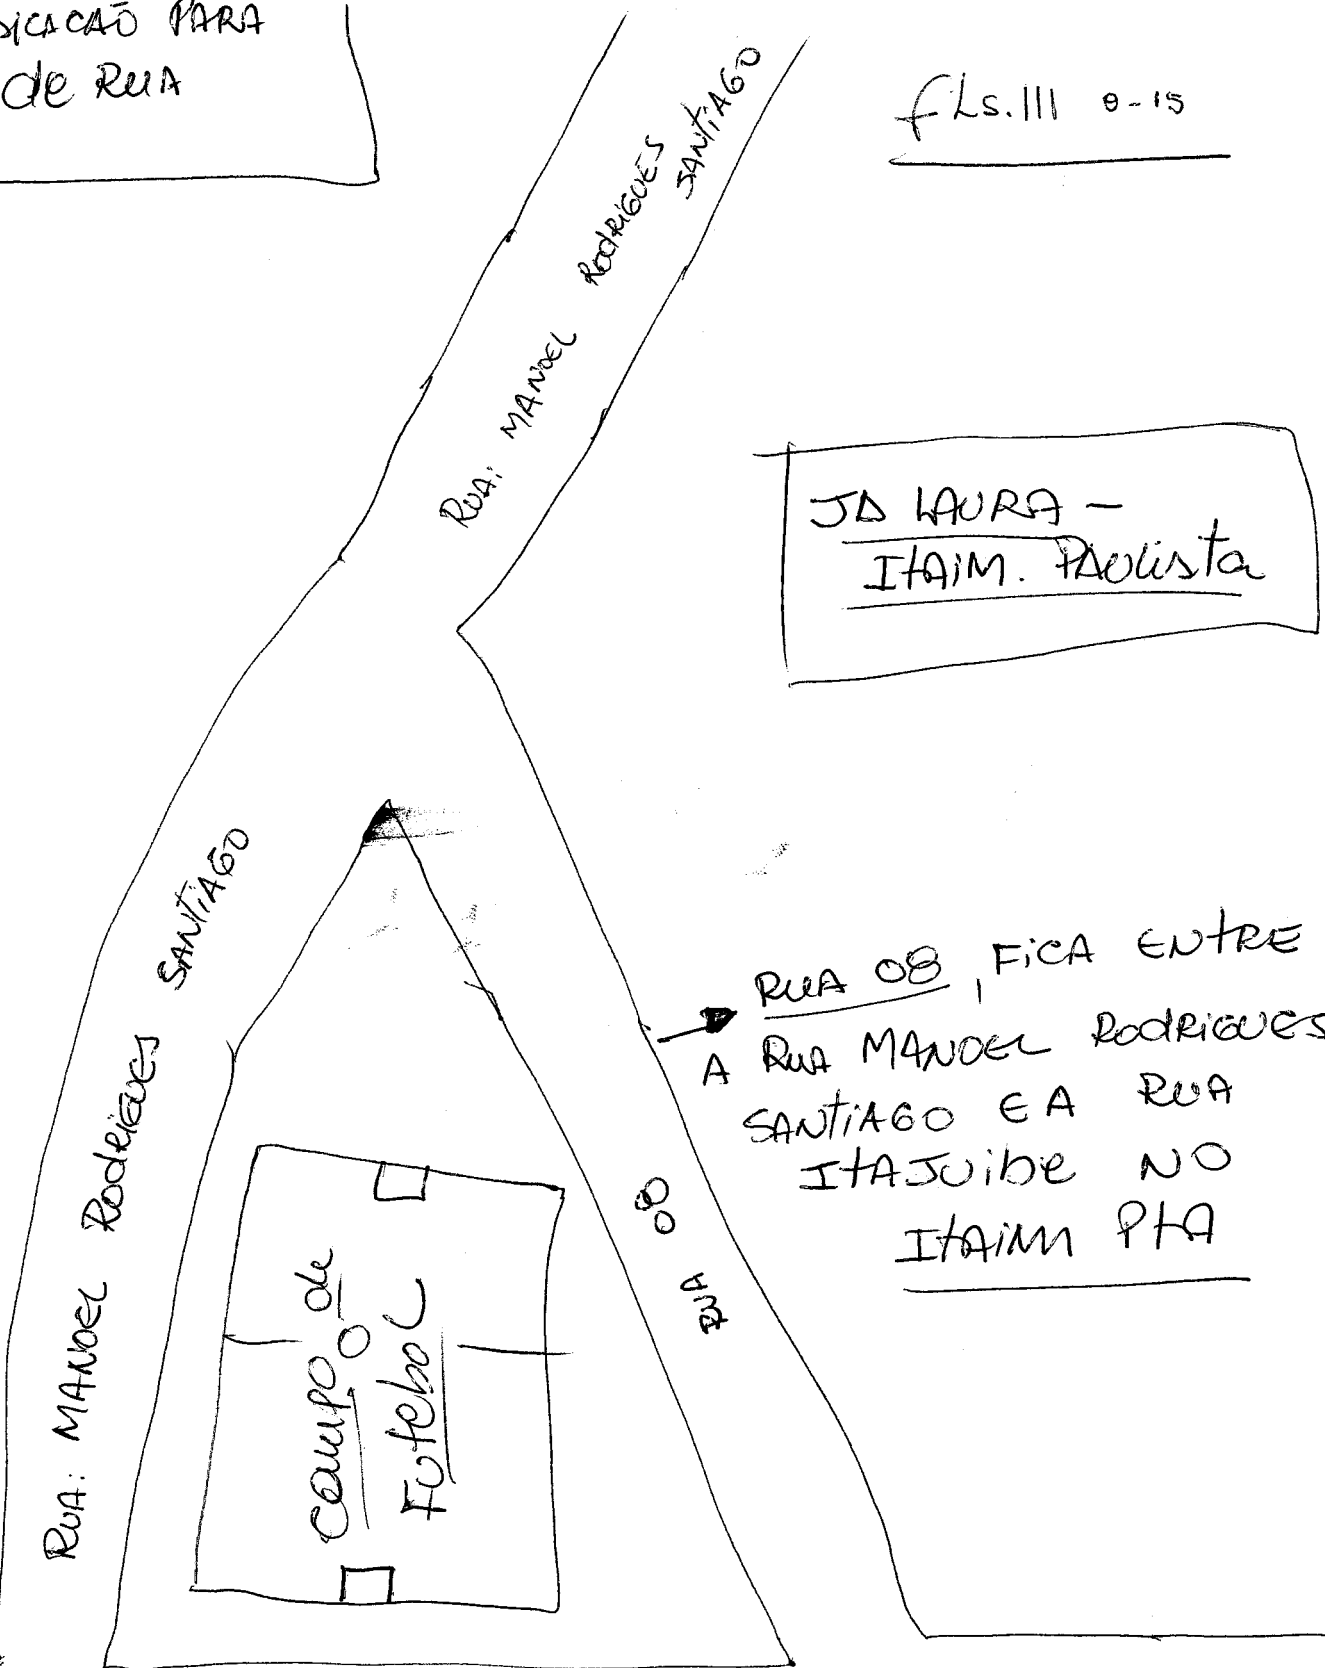 DICACAÕ PARA
de RUA
fLs.III 8-15
RUA: MANOEL RODRIGUES SANTIAGO
JD LAURA -
ITAIM. PAULISTA
RUA: MANOEL RODRIGUES SANTIAGO
RUA 08, FICA ENTRE
A RUA MANOEL RODRIGUES
SANTIAGO E A RUA
ITAJUIBE NO
ITAIM PTA
RUA 08
CAMPO de
FUTEBOL